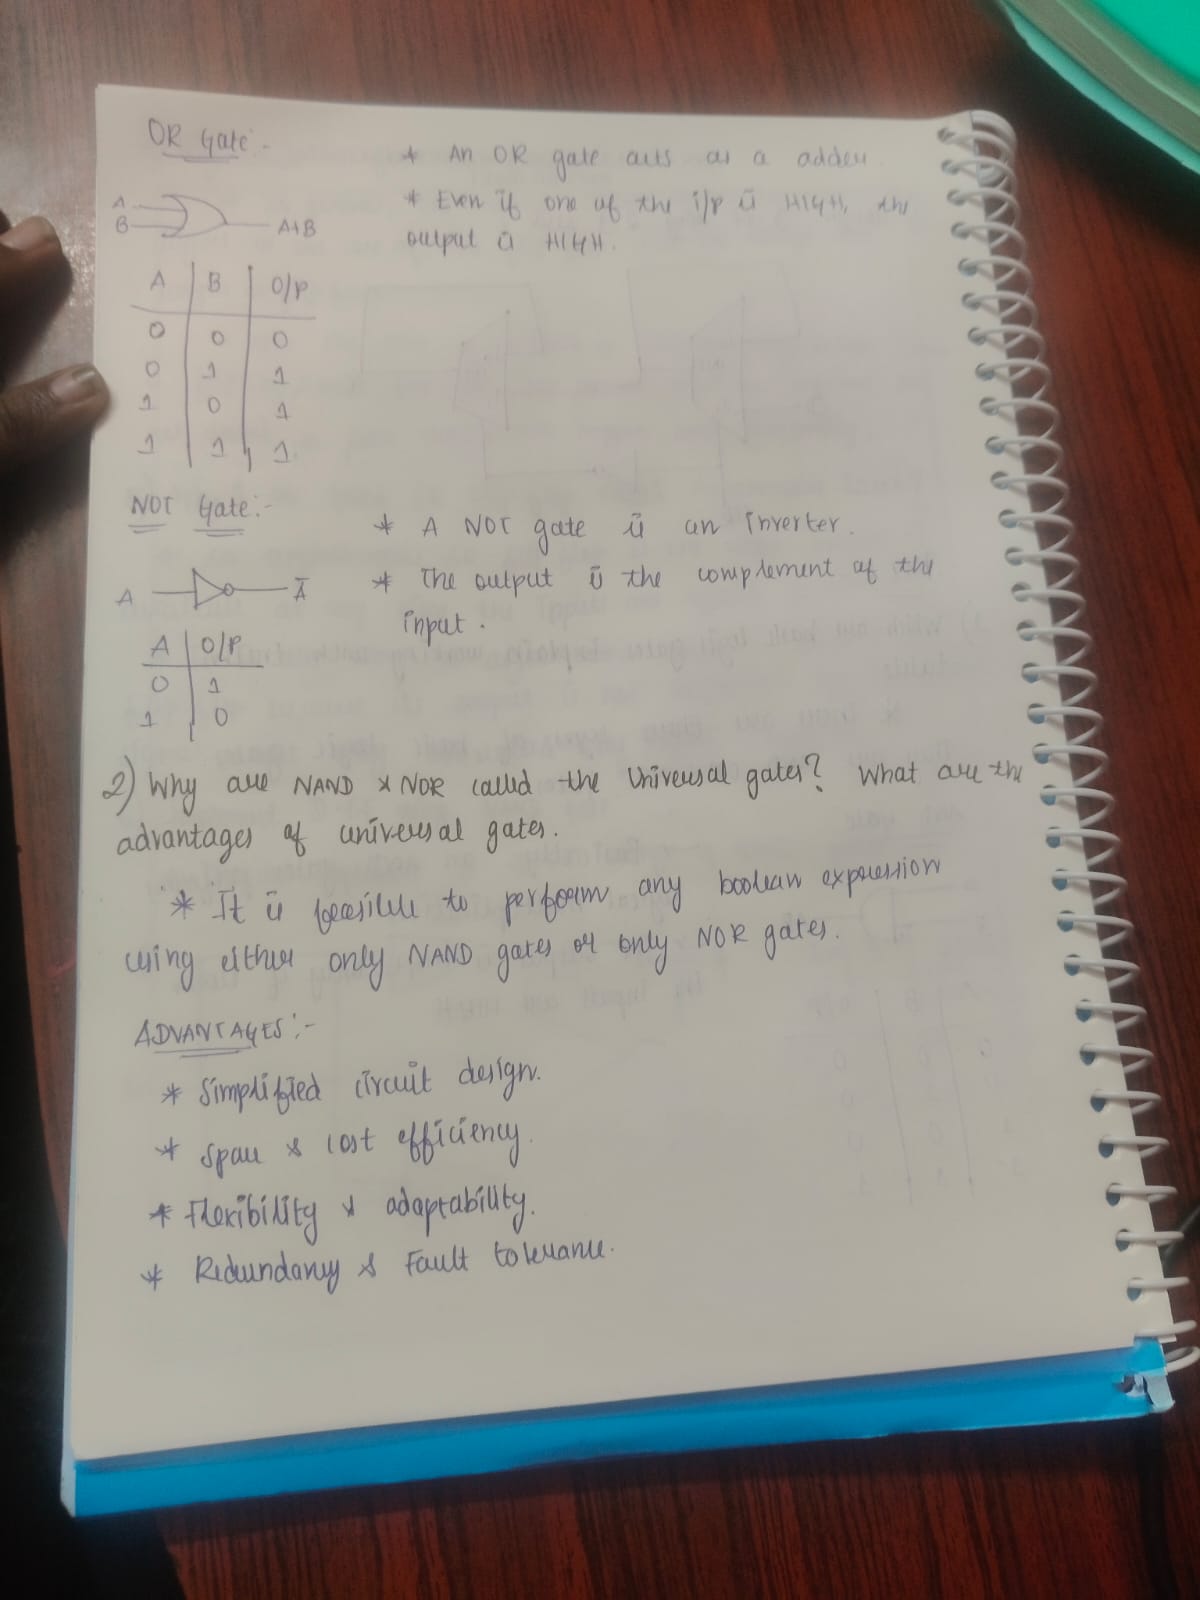 OR Gate:-
* An OR gate acts as a adder
* Even if one of the i/p is HIGH, the
output is HIGH.
A
B
A+B
A B O/P
0 0 0
0 1 1
1 0 1
1 1 1
NOT Gate:-
* A NOT gate is an inverter.
* The output is the complement of the
input.
A Ā
A O/P
0 1
1 0
2) Why are NAND & NOR called the Universal gates? What are the
advantages of universal gates.
* It is feasible to perform any boolean expression
using either only NAND gates or only NOR gates.
ADVANTAGES:-
* Simplified circuit design.
* Space & cost efficiency.
* Flexibility & adaptability.
* Redundancy & Fault tolerance.